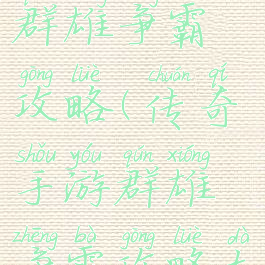 群雄争霸
gōng lüè chuán qí
攻略(传奇
shǒu yóu qún xióng
手游群雄
zhēng bà gōng lüè dà
争霸攻略大